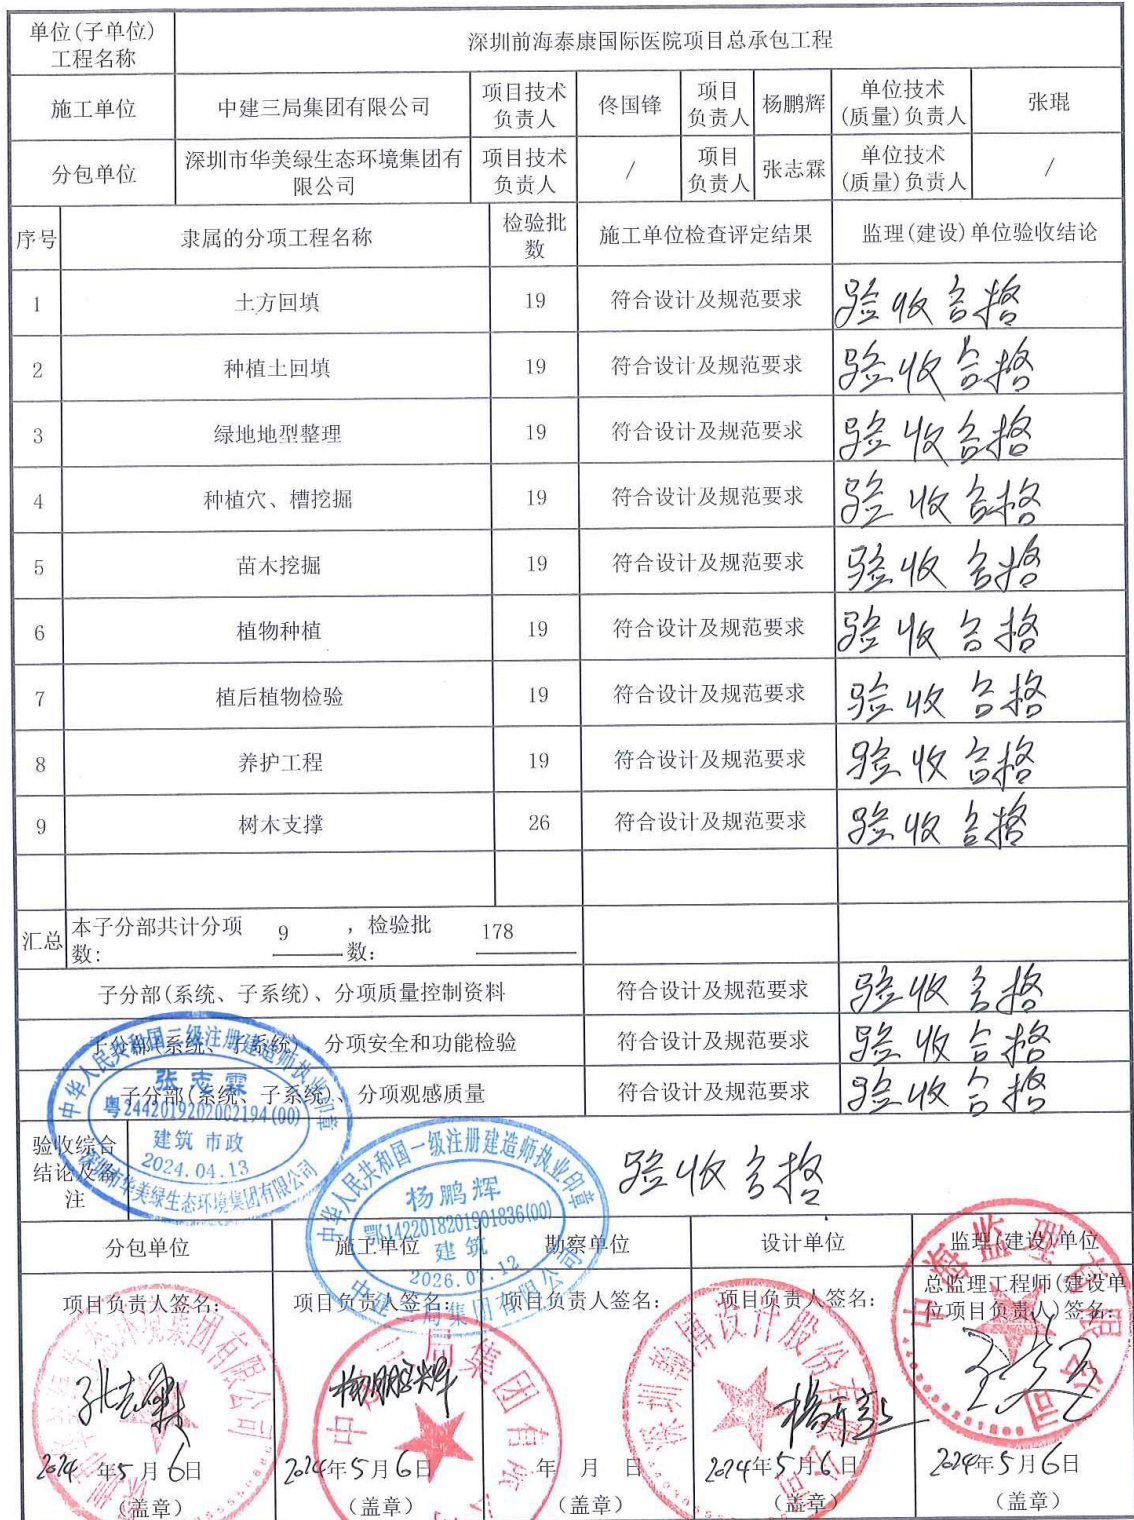 单位(子单位)
工程名称
深圳前海泰康国际医院项目总承包工程
施工单位
中建三局集团有限公司
项目技术
负责人
佟国锋
项目
负责人
杨鹏辉
单位技术
(质量)负责人
张琨
分包单位
深圳市华美绿生态环境集团有
限公司
项目技术
负责人
/
项目
负责人
张志霖
单位技术
(质量)负责人
/
序号
隶属的分项工程名称
检验批
数
施工单位检查评定结果
监理(建设)单位验收结论
1
土方回填
19
符合设计及规范要求
验收合格
2
种植土回填
19
符合设计及规范要求
验收合格
3
绿地地型整理
19
符合设计及规范要求
验收合格
4
种植穴、槽挖掘
19
符合设计及规范要求
验收合格
5
苗木挖掘
19
符合设计及规范要求
验收合格
6
植物种植
19
符合设计及规范要求
验收合格
7
植后植物检验
19
符合设计及规范要求
验收合格
8
养护工程
19
符合设计及规范要求
验收合格
9
树木支撑
26
符合设计及规范要求
验收合格
汇总
本子分部共计分项
数:
9
，检验批
数:
178
子分部(系统、子系统)、分项质量控制资料
符合设计及规范要求
验收合格
子分部(系统、子系统)、分项安全和功能检验
符合设计及规范要求
验收合格
子分部(系统、子系统)、分项观感质量
符合设计及规范要求
验收合格
中华人民共和国二级注册建造师执业印章
张志霖
粤2442019202002194(00)
建筑 市政
2024.04.13
深圳市华美绿生态环境集团有限公司
验收综合
结论及备
注
验收合格
中华人民共和国一级注册建造师执业印章
杨鹏辉
鄂1422018201901836(00)
建筑
2026.07.12
中建三局集团有限公司
分包单位
施工单位
勘察单位
设计单位
监理(建设)单位
项目负责人签名:
项目负责人签名:
项目负责人签名:
项目负责人签名:
总监理工程师(建设单
位项目负责人)签名:
张志霖
杨鹏辉
2024年5月6日
2024年5月6日
年 月 日
2024年5月6日
2024年5月6日
(盖章)
(盖章)
(盖章)
(盖章)
(盖章)